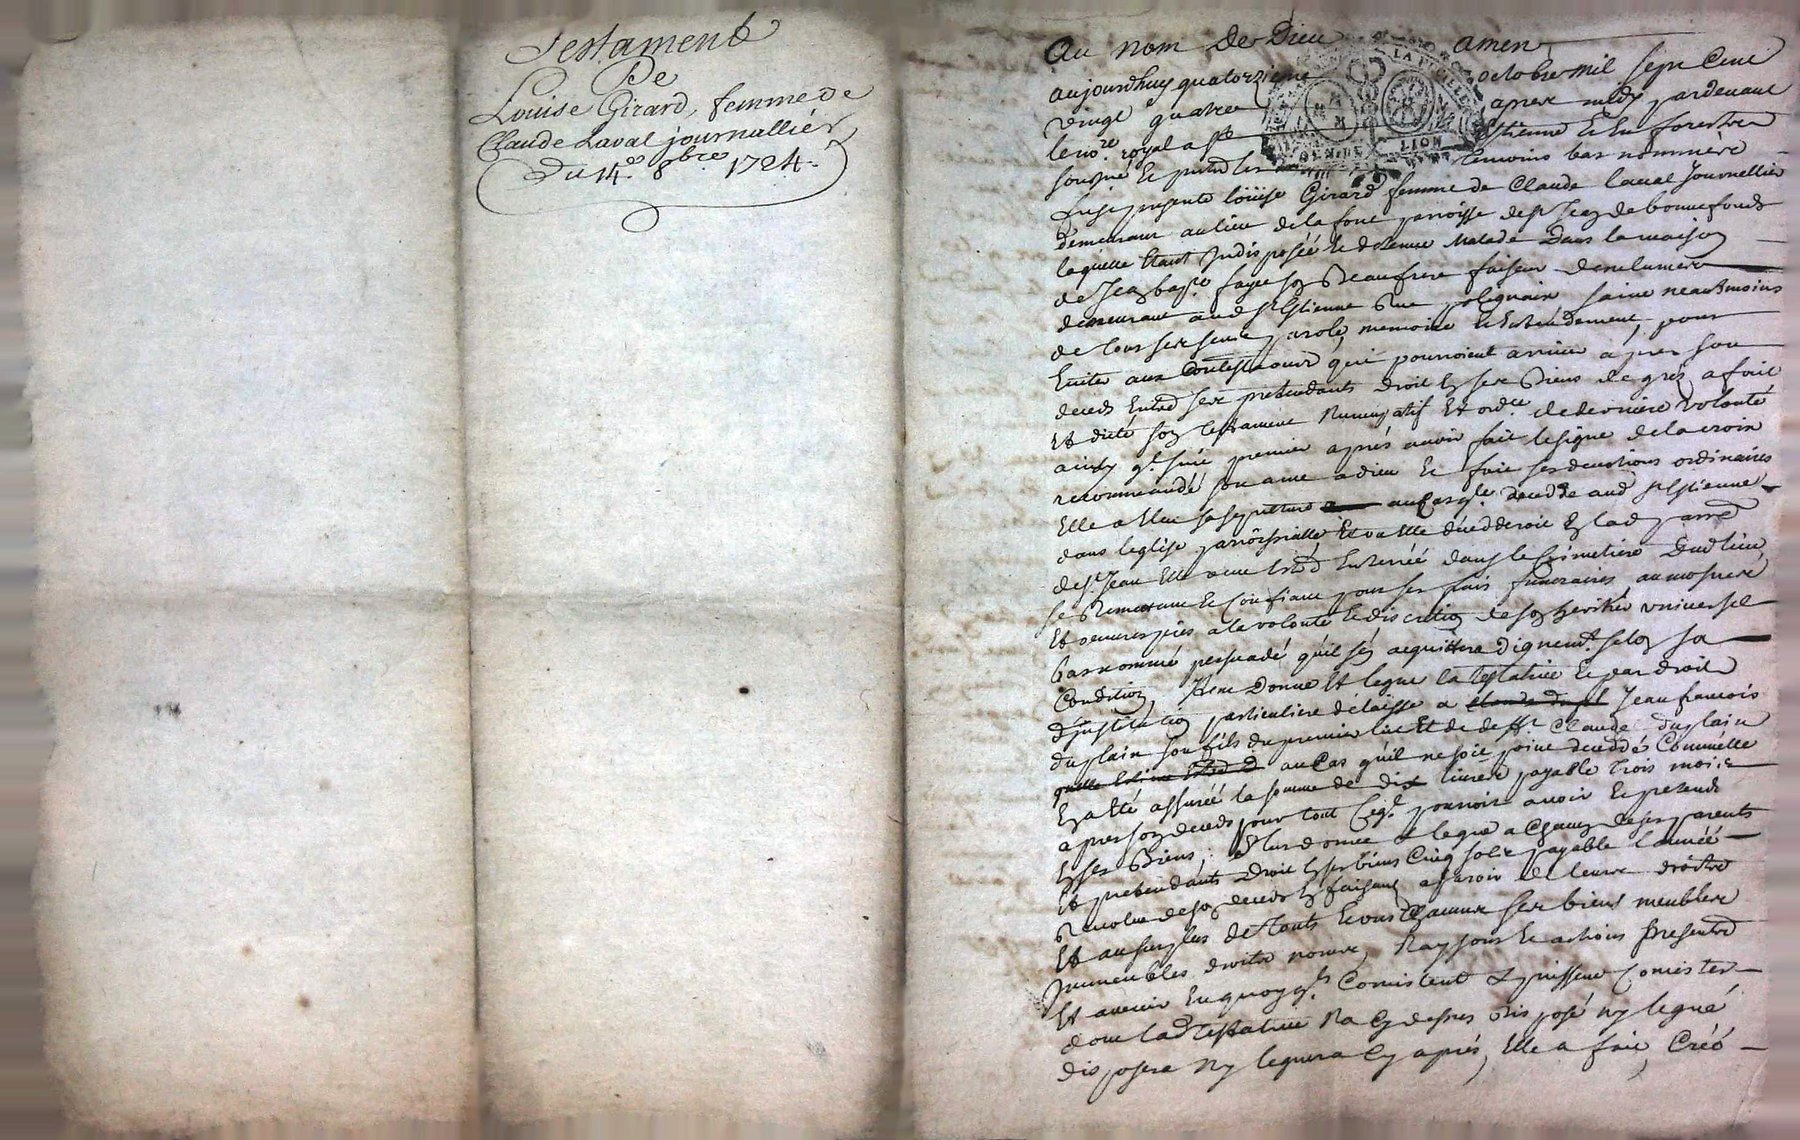 Testament
De
Louise Girard, femme de
Claude Laval journallier,
Du 14e. 8bre 1724.
Au nom de Dieu amen
aujourdhuy quatorzieme octobre mil sept cent
vingt quatre apres midy pardevant
le nore. royal a St Estienne en forestz
soubzne et presents les temoins bas nommés
fust presente loüise Girard femme de Claude laval Journellier
demeurant au lieu de la font parroisse de st Jean de bonnefonds
laquelle étant Indisposée et detenue malade dans la maison
de Jean bapte. faye son Beaufrere faiseur
demeurant aud st Estienne Rue polignain saine neantmoins
de tous ses sens parole, memoire et Entendement, pour
Eviter aux Contestaõns qui pourroient arriver après son
deceds Entre ses pretendants droit En ses Biens de gres a fait
et dicté son testament Nuncupatif et ordce. de derniere volonté
ainsy q. suit premier après avoir fait le signe de la croix
recommandé son ame a dieu et fait ses devotions ordinaires
Elle a Eleu sa sepulture au Cas qle. decedde aud st Estienne
dans leglise parroissialle Et ou Elle decedderoit En lad parre
de st Jean Elle veut Estre Enterrée dans le Cimetiere Dudlieu,
se Remettant et Confiant pour ses frais funeraires aumosnes
et oeuvres pies a la volonté et discretion de son heritier universel
bas nommé persuadé qu'il s'en acquittera dignemt. selon sa
Condition, Item Donne et legue la testatrice et par droit
d'institution particuliere délaisse a Jean francois
duplain son fils du premier lict et de defft. Claude duplain
au Cas qu'il ne soit point deceddé Comme Elle
En a été assurée la somme de dix livres payable trois mois
apres son deceds pour tout ce q. pourroit avoir et pretendre
En ses Biens; Plus donne et legue a Chacun de ses parents
et pretendants Droit En ses biens Cinq sols payable l'année
Revolue de son deceds En faisant apparoir de leurs droits
Et au surplus de touts et uns Chacuns ses biens meubles
Immeubles droits noms, Raysons et actions presents
et avenir En quoy qls. Consistent et puissent Consister
dont lad testatrice Na Cy dessus disposé ny legué
disposera ny leguera Cy après, Elle a fait, Créé